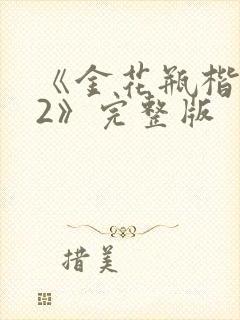 《金花瓶楷
2》完整版
措美